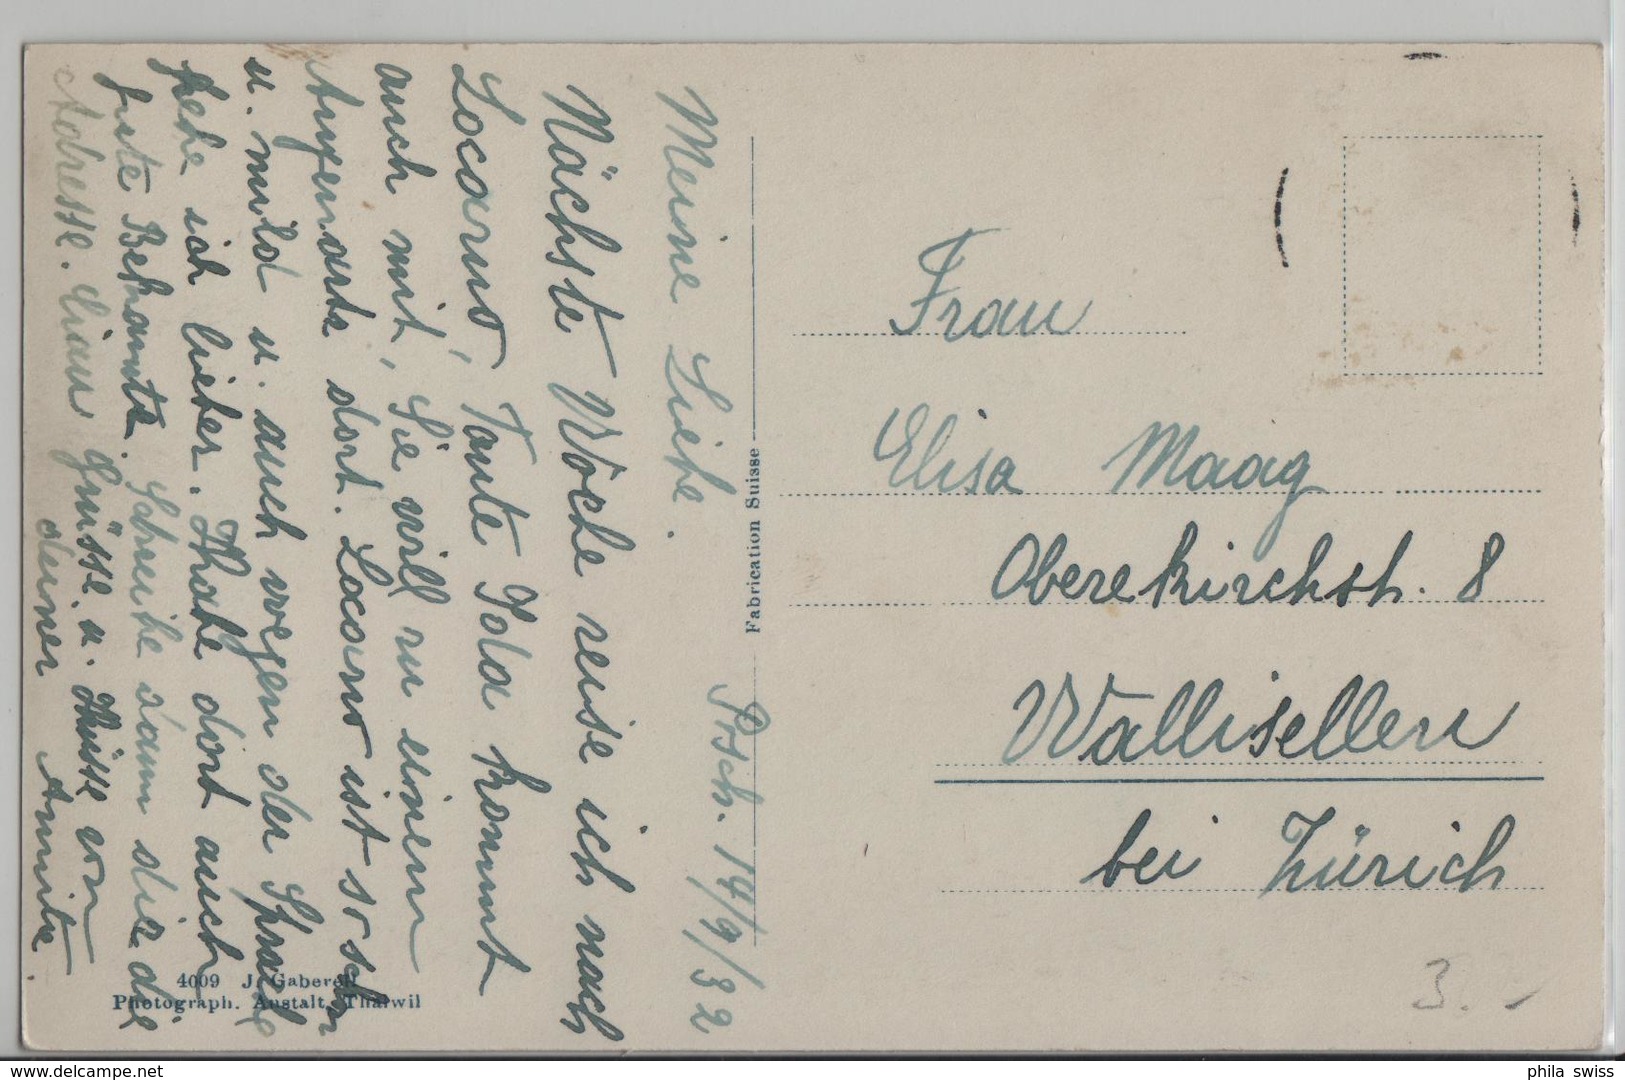 Meine Liebe.
Psch. 14/9/32
Nächste Woche reise ich nach
Locarno, Tante Ida kommt
auch mit, Sie will zu einem
dort. Locarno ist so schön
u. mild u. auch wegen der Sprache
gehe ich lieber. Ihabe dort auch
gute Bekannte. Schreibe dann dir die
Adresse. Ciau Grüsse. u. Küsse von
deiner Annita.
Fabrication Suisse
4009 J. Gaberell
Photograph. Anstalt, Thalwil
Frau
Elisa Maag
Oberekirchst. 8
Wallisellen
bei Zürich
3.-
phila swiss